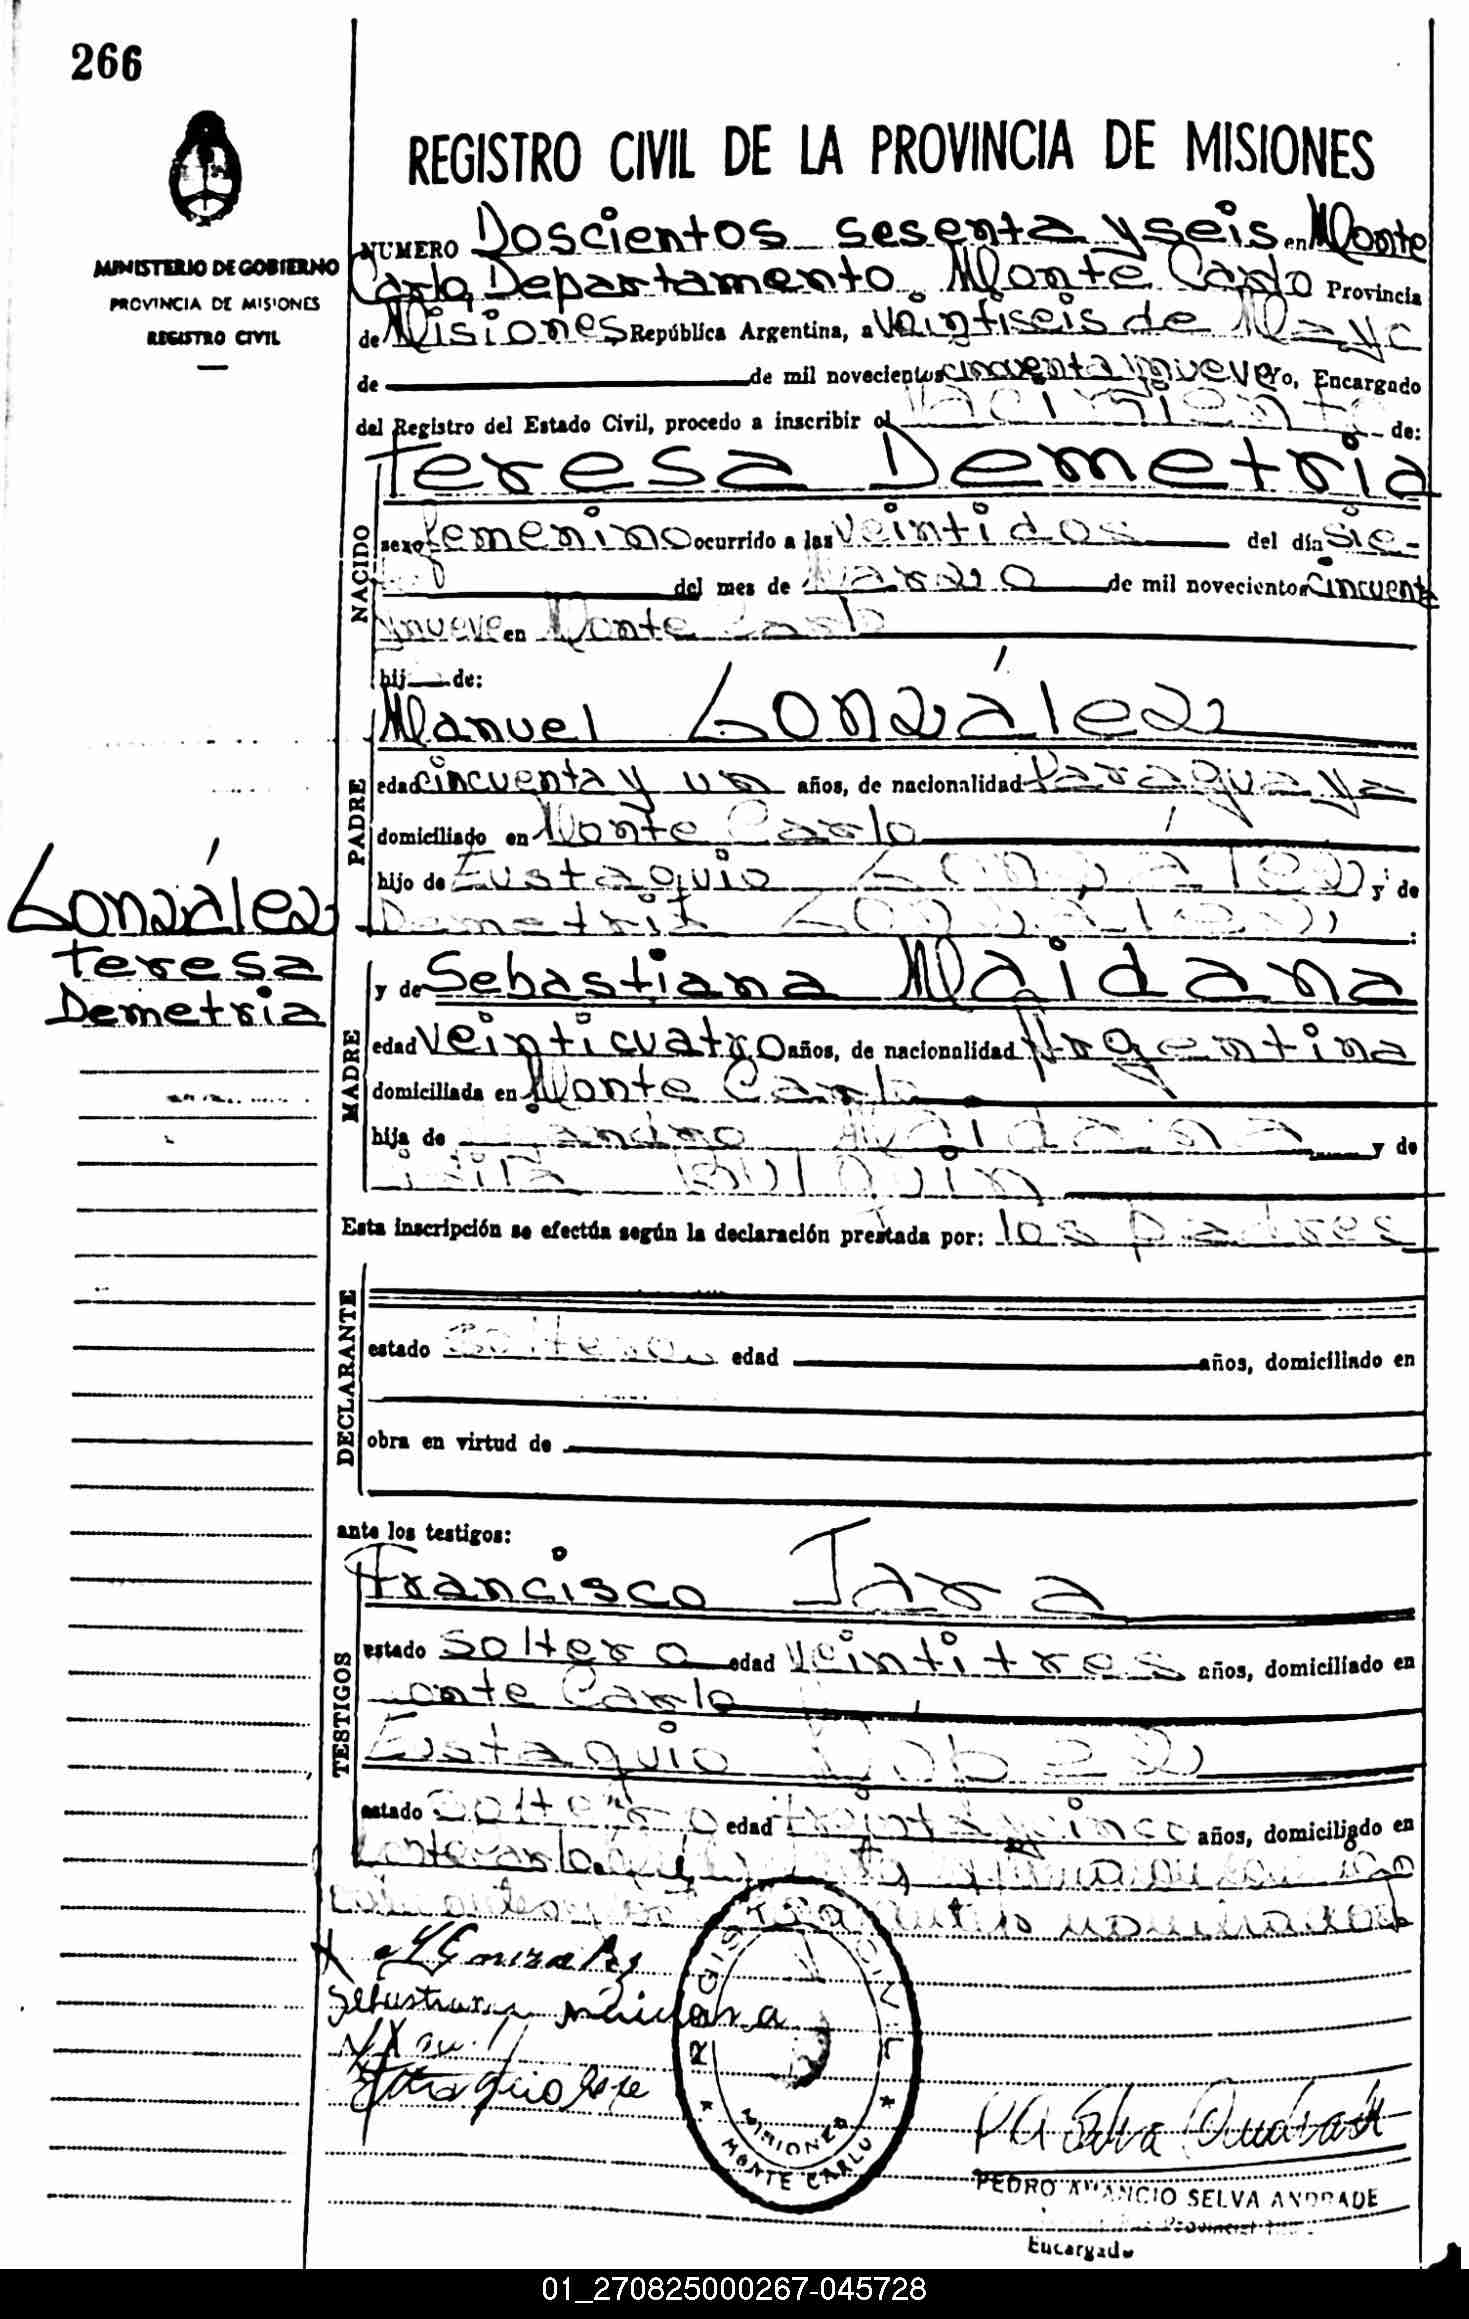 266
REGISTRO CIVIL DE LA PROVINCIA DE MISIONES
MINISTERIO DE GOBIERNO
PROVINCIA DE MISIONES
REGISTRO CIVIL
NUMERO Doscientos sesenta y seis en Monte
Carlo, Departamento Monte Carlo Provincia
de Misiones República Argentina, a Veintiseis de Mayo
de de mil novecientos cincuenta y nueve Yo, Encargado
del Registro del Estado Civil, procedo a inscribir el nacimiento de:
Teresa Demetria
NACIDO
sexo femenino ocurrido a las veintidos del día sie-
te del mes de Marzo de mil novecientos cincuenta
y nueve en Monte Carlo
hij de:
Manuel González
PADRE
edad cincuenta y un años, de nacionalidad Paraguaya
domiciliado en Monte Carlo
hijo de Eustaquio González y de
Demetria González
González
Teresa
Demetria
MADRE
y de Sebastiana Maidana
edad veinticuatro años, de nacionalidad Argentina
domiciliada en Monte Carlo
hija de Maidana y de
Esta inscripción se efectúa según la declaración prestada por: los padres
DECLARANTE
estado soltero edad años, domiciliado en
obra en virtud de
ante los testigos:
TESTIGOS
Francisco Jara
estado Soltero edad Veintitres años, domiciliado en
Monte Carlo
Eustaquio
estado Soltero edad treinta y cinco años, domiciliado en
Monte Carlo
M Gonzalez
Sebastiana Maidana
Eustaquio
REGISTRO CIVIL
MISIONES
MONTE CARLO
P A Selva Andrade
PEDRO AMANCIO SELVA ANDRADE
Encargado
01_270825000267-045728